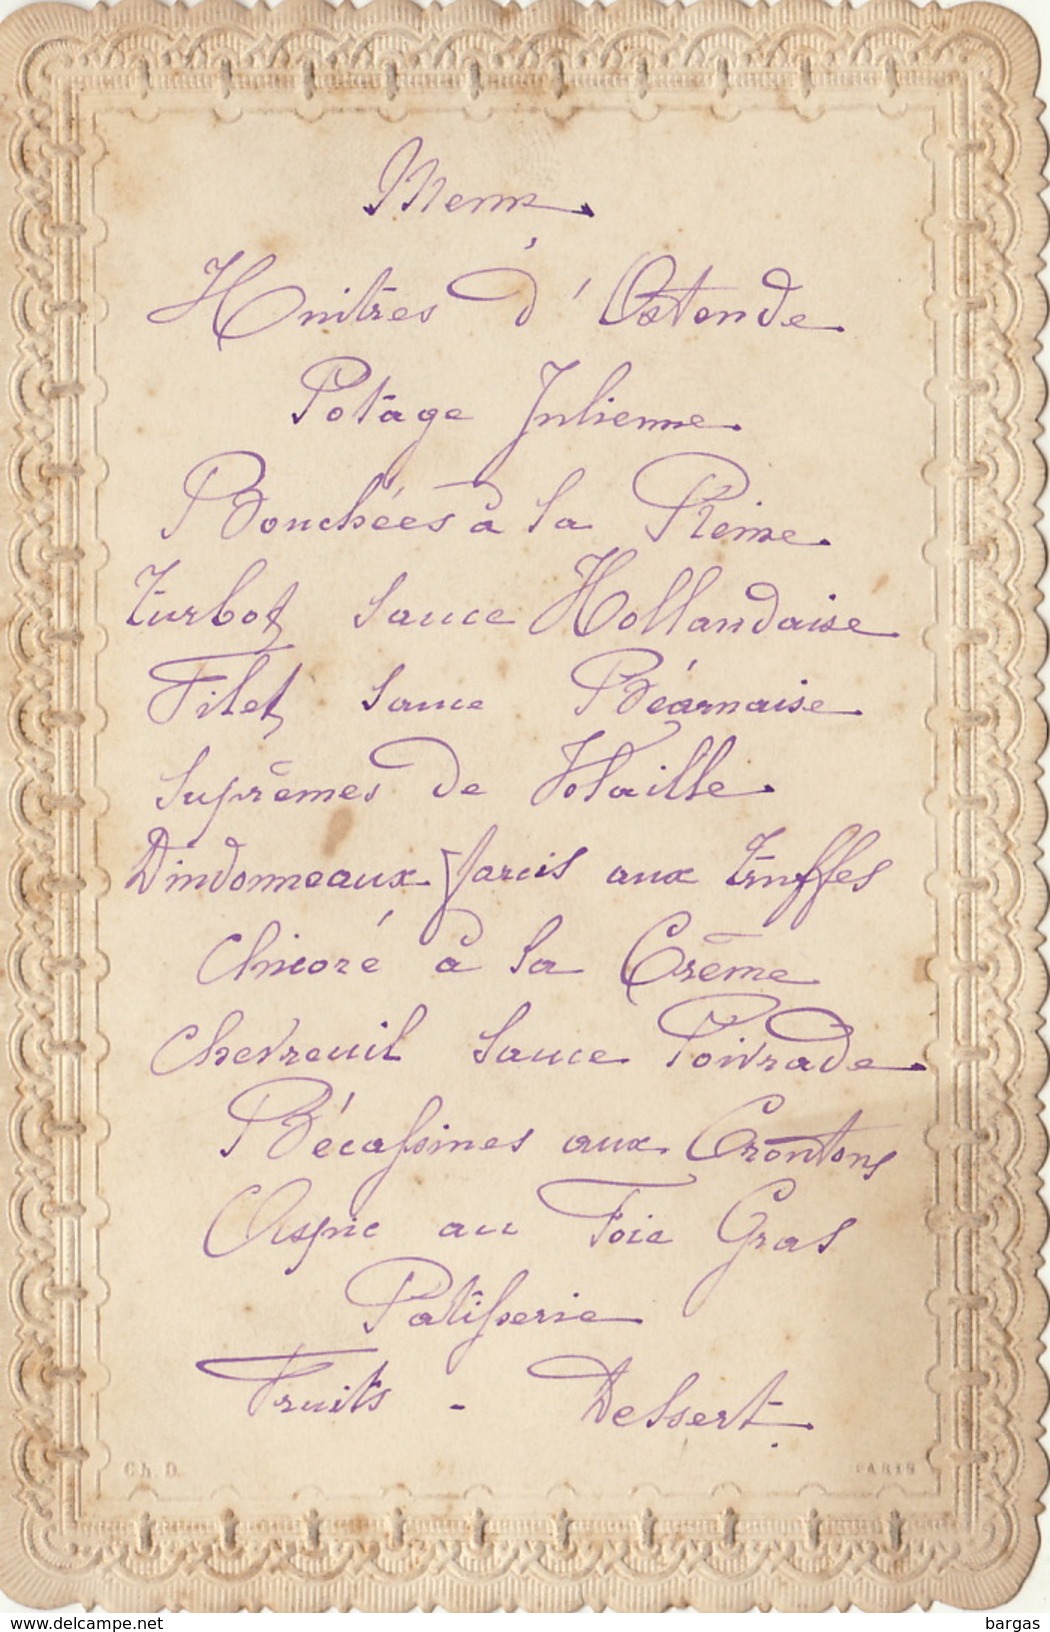 Menu
Huîtres d'Ostende
Potage Julienne
Bouchées à la Reine
Turbot sauce Hollandaise
Filet sauce Béarnaise
Suprêmes de Volaille
Dindonneaux farcis aux truffes
Chicoré à la Crème
Chevreuil sauce Poivrade
Bécassines aux Croûtons
Aspic au Foie Gras
Patisserie
Fruits - Dessert
Ch. D. PARIS
www.delcampe.net bargas